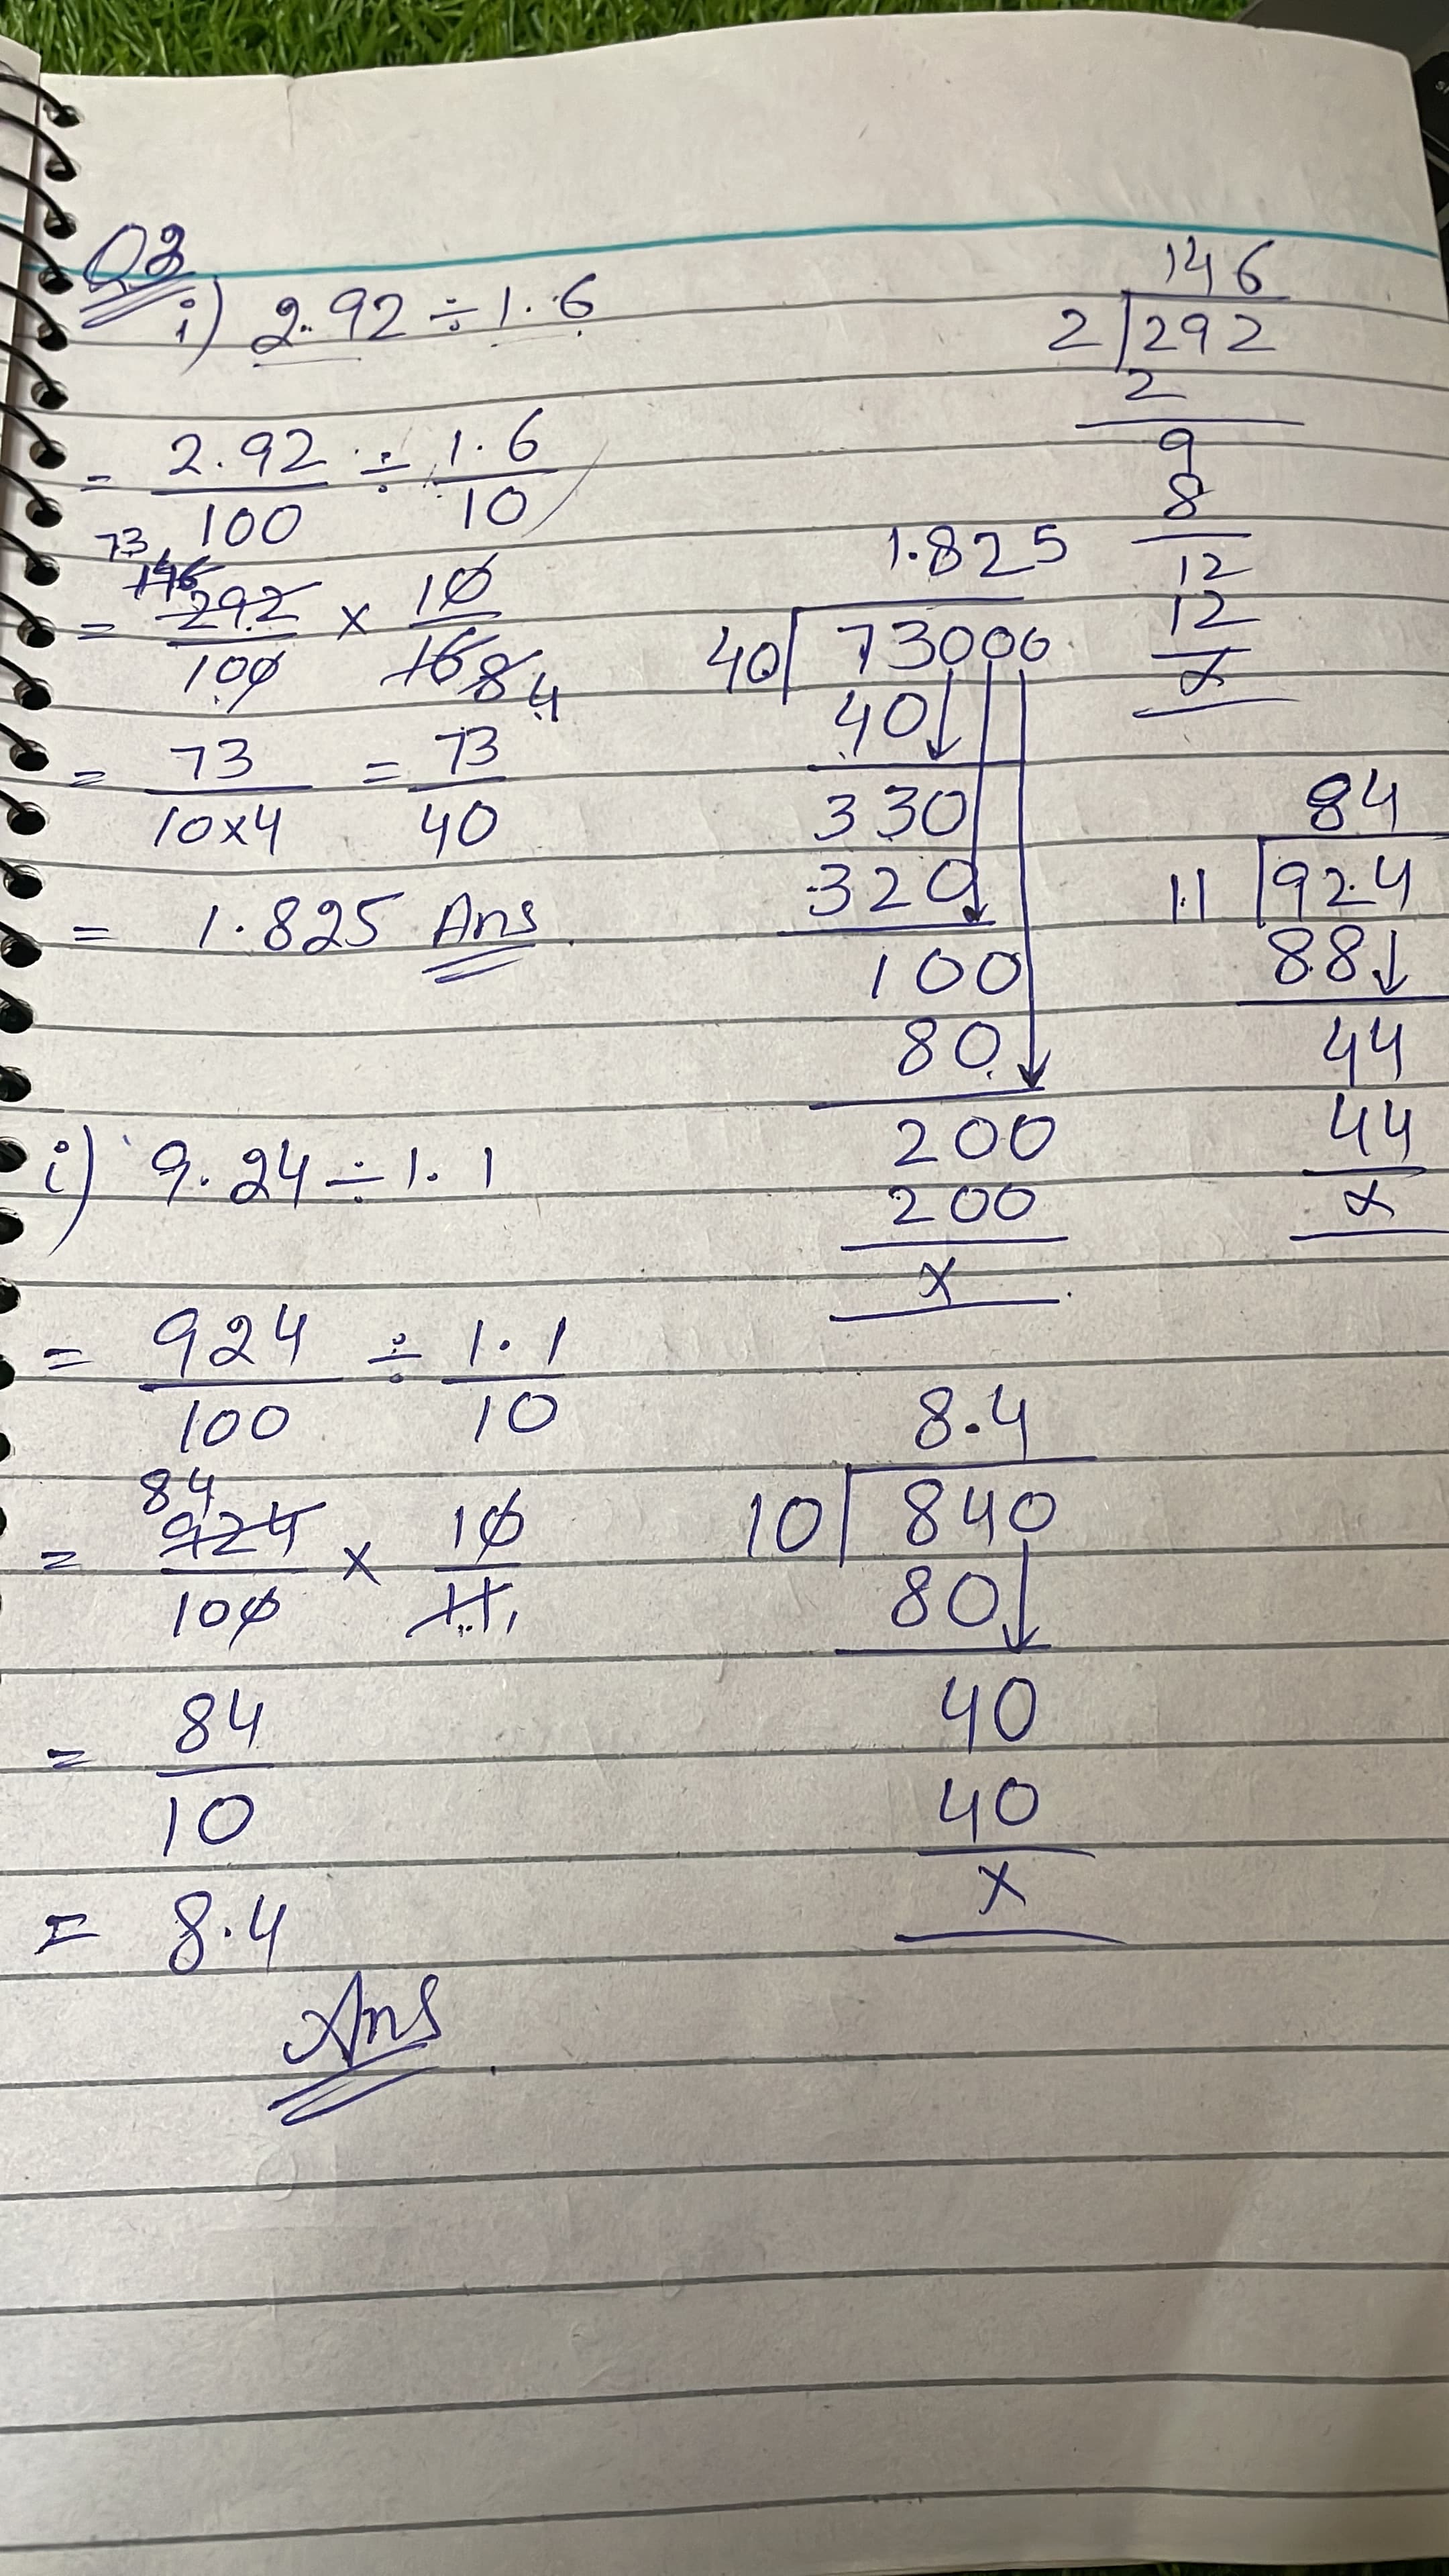 Q3
i) 2.92 ÷ 1.6
= 2.92/100 ÷ 1.6/10
73
146
= 292/100 × 10/16 8 4
= 73/10×4 = 73/40
= 1.825 Ans
i) 9.24 ÷ 1.1
= 924/100 ÷ 1.1/10
84
= 924/100 × 10/11 1
= 84/10
= 8.4
Ans
146
2 292
2
9
8
12
12
x
1.825
40 73000
40
330
320
100
80
200
200
x
84
11 924
88
44
44
x
8.4
10 840
80
40
40
x